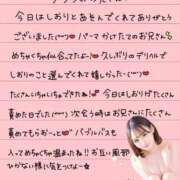 今日はしおりとあそんでくれてありがとう
ございました(˘˘˘)♥ パーマかけたてのお兄さん
めちゃくちゃ似合ってたよ〜♥ 久しぶりのデリヘルで
しおりのこと選んでくれて嬉しかった〜(˘˘˘)♥
たくさんいちゃいちゃできたね♥ 今日はしおりがたくさん
責めた日でした(˘˘˘) 次会う時はお兄さんにたくさん
責めてもらおーっと♥ バブルバスも
入ってめちゃくちゃ温まったね!! お互い風邪
ひかない様に気をつけよ〜